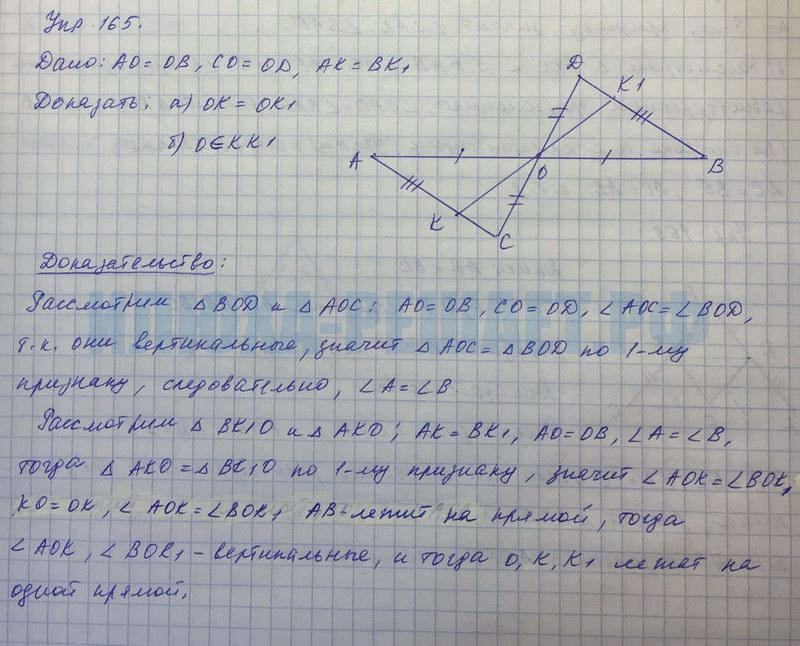 Упр. 165.
Дано: AO = OB, CO = OD, AK = BK1
Доказать: а) OK = OK1
б) O ∈ KK1
D
K1
A
O
B
K
C
Доказательство:
Рассмотрим △ BOD и △ AOC: AO = OB, CO = OD, ∠ AOC = ∠ BOD,
т.к. они вертикальные, значит △ AOC = △ BOD по 1-му
признаку, следовательно, ∠A = ∠B.
Рассмотрим △ BK1O и △ AKO; AK = BK1, AO = OB, ∠A = ∠B,
тогда △ AKO = △ BK1O по 1-му признаку, значит ∠ AOK = ∠ BOK1
KO = OK, ∠ AOK = ∠ BOK1 AB - лежит на прямой, тогда
∠ AOK, ∠ BOK1 - вертикальные, и тогда O, K, K1 лежат на
одной прямой.